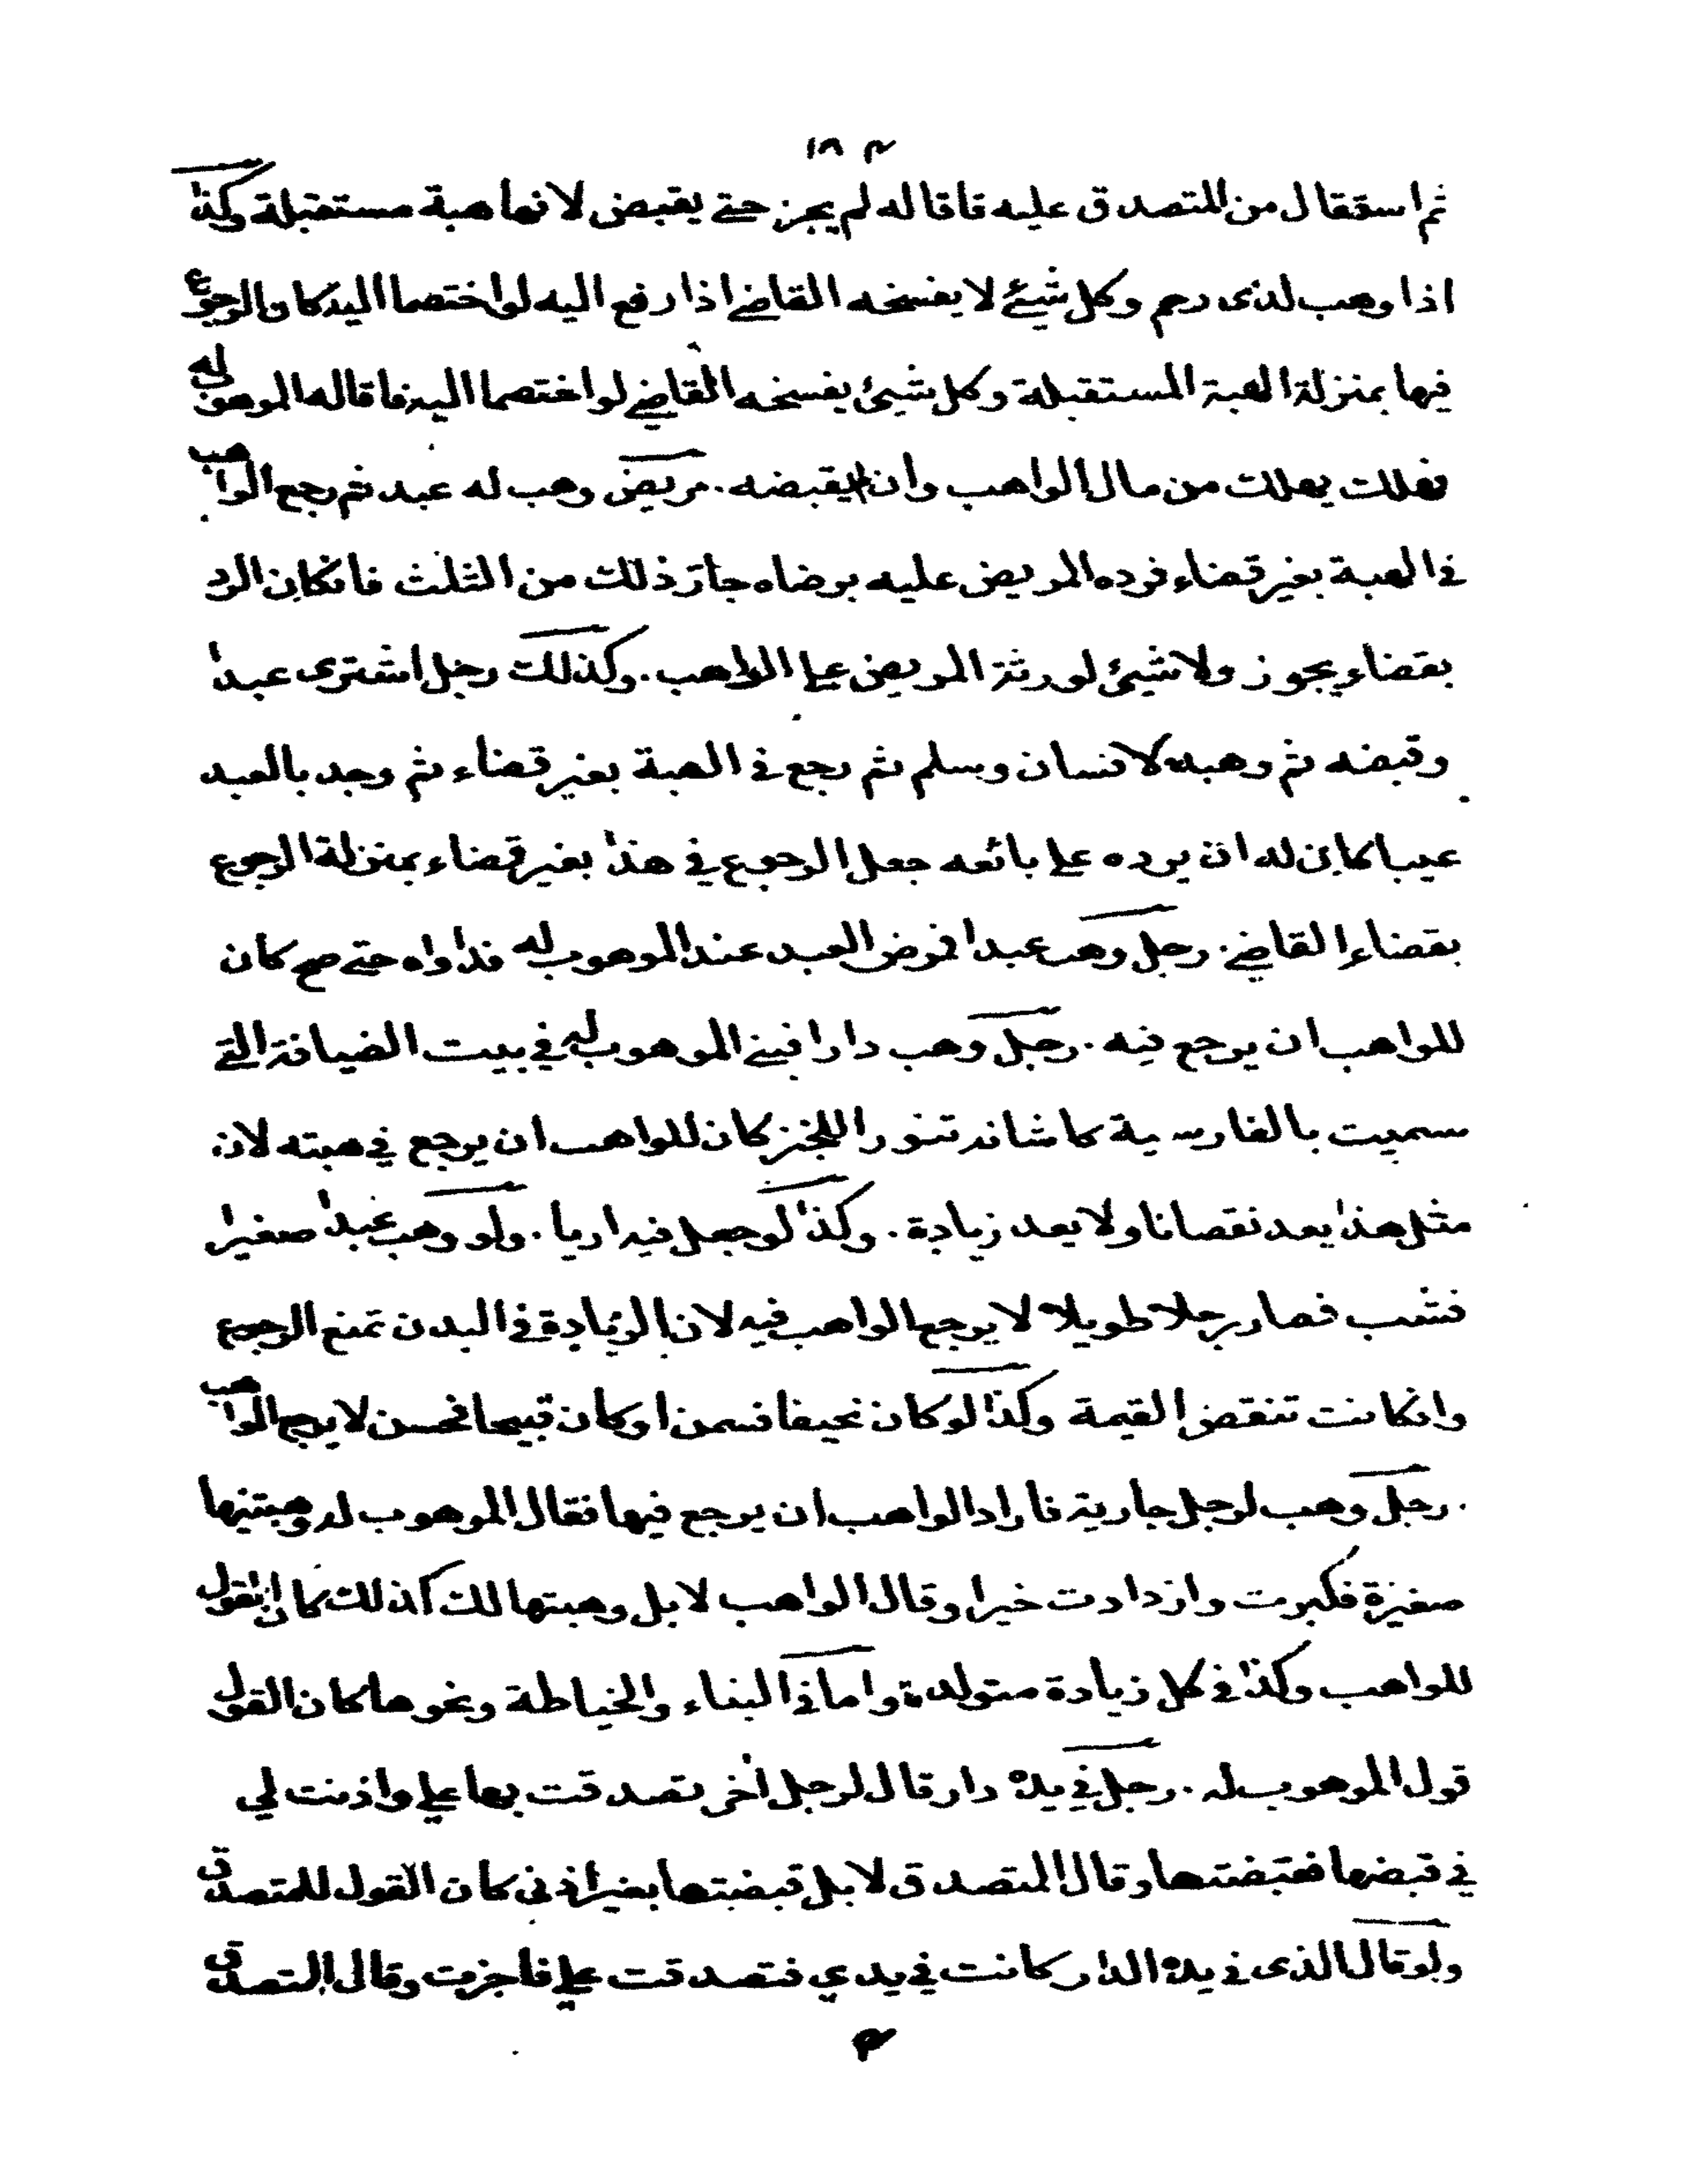 ثم استقال من المتصدق عليه فاقاله لم يجز حتى يقبض لانها هبة مستقبلة وكذا
اذا وهب لذى رحم وكل شيئ لا يفسخه القاضي اذا رفع اليه لو اختصما اليه كان الرجوع
فيها بمنزلة الهبة المستقبلة وكل شيئ يفسخه القاضي لو اختصما اليه فاقاله الموهوب له
فهلك يهلك من مال الواهب وان لم يقبضه . مريض وهب له عبد ثم رجع الواهب
في الهبة بغير قضاء فرده المريض عليه برضاه جاز ذلك من الثلث فانكان الرد
بقضاء يجوز ولا شيئ لورثة المريض على الواهب . وكذلك رجل اشترى عبدا
وقبضه ثم وهبه لانسان وسلم ثم رجع في الهبة بغير قضاء ثم وجد بالعبد
عيبا كان له ان يرده على بائعه جعل الرجوع في هذا بغير قضاء بمنزلة الرجوع
بقضاء القاضي . رجل وهب عبدا فمرض العبد عند الموهوب له فداواه حتى صح كان
للواهب ان يرجع فيه . رجل وهب دارا فبنى الموهوب له في بيت الضيافة التي
سميت بالفارسية كاشانه تنورا للخبز كان للواهب ان يرجع في هبته لان
مثل هذا يعد نقصانا ولا يعد زيادة . وكذا لو جعل فيه اريا . ولو وهب عبدا صغيرا
فشب فصار رجلا طويلا لا يرجع الواهب فيه لان الزيادة في البدن تمنع الرجوع
وانكانت تنقص القيمة وكذا لو كان نحيفا فسمن او كان قبيحا فحسن لا يرجع الواهب
. رجل وهب لرجل جارية فاراد الواهب ان يرجع فيها فقال الموهوب له وهبتنيها
صغيرة فكبرت وازدادت خيرا وقال الواهب لا بل وهبتها لك كذلك كان القول
للواهب وكذا في كل زيادة متولدة واما في البناء والخياطة ونحوها كان القول
قول الموهوب له . رجل في يده دار قال لرجل اخر تصدقت بها علي واذنت لي
في قبضها فقبضتها وقال المتصدق لا بل قبضتها بغير اذني كان القول للمتصدق
ولو قال الذى في يده الدار كانت في يدي فتصدقت علي فاجزت وقال المتصدق